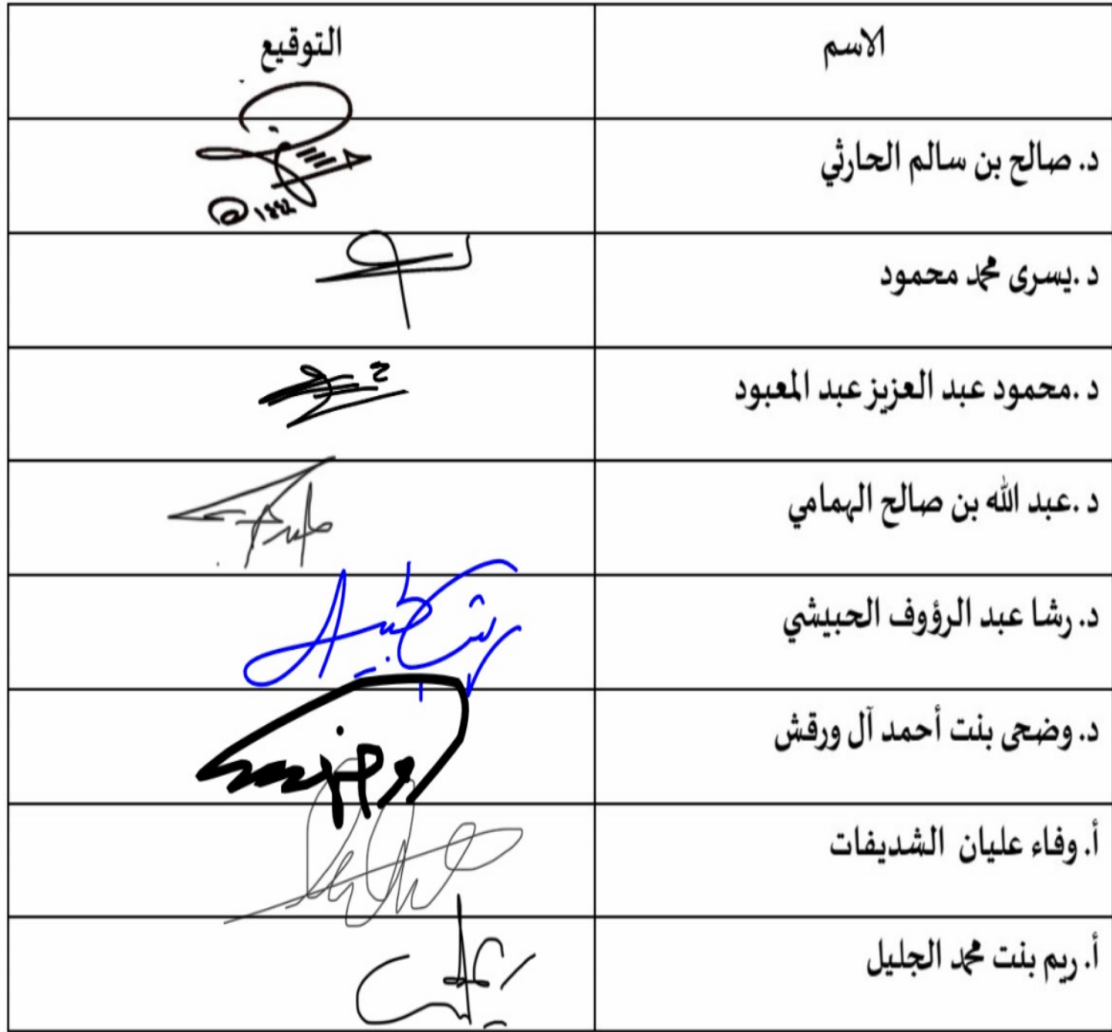 الاسم التوقيع
د. صالح بن سالم الحارثي
د .يسرى محمد محمود
د .محمود عبد العزيز عبد المعبود
د .عبد الله بن صالح الهمامي
د. رشا عبد الرؤوف الحبيشي
د. وضحى بنت أحمد آل ورقش
أ. وفاء عليان الشديفات
أ. ريم بنت محمد الجليل